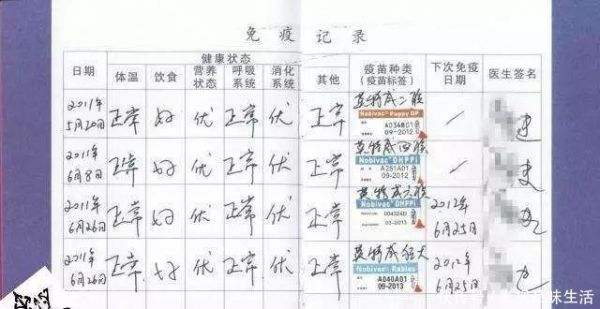 免疫记录
日期 健康状态 疫苗种类（疫苗标签） 下次免疫日期 医生签名
体温 饮食 营养状态 呼吸系统 消化系统 其他
2011年5月20日 正常 好 优 正常 优 正常 英特威二联 /
Nobivac Puppy DP
A034B01
09-2012
2011年6月8日 正常 好 优 正常 优 正常 英特威四联 /
Nobivac DHPPi
A251A01
09-2013
2011年6月26日 正常 好 优 正常 优 正常 英特威六联 2012年6月25日
Nobivac DHPPi
2011年6月26日 正常 好 优 正常 优 正常 英特威狂犬 2012年6月25日
Nobivac Rabies
A040A01
09-2013
味生活